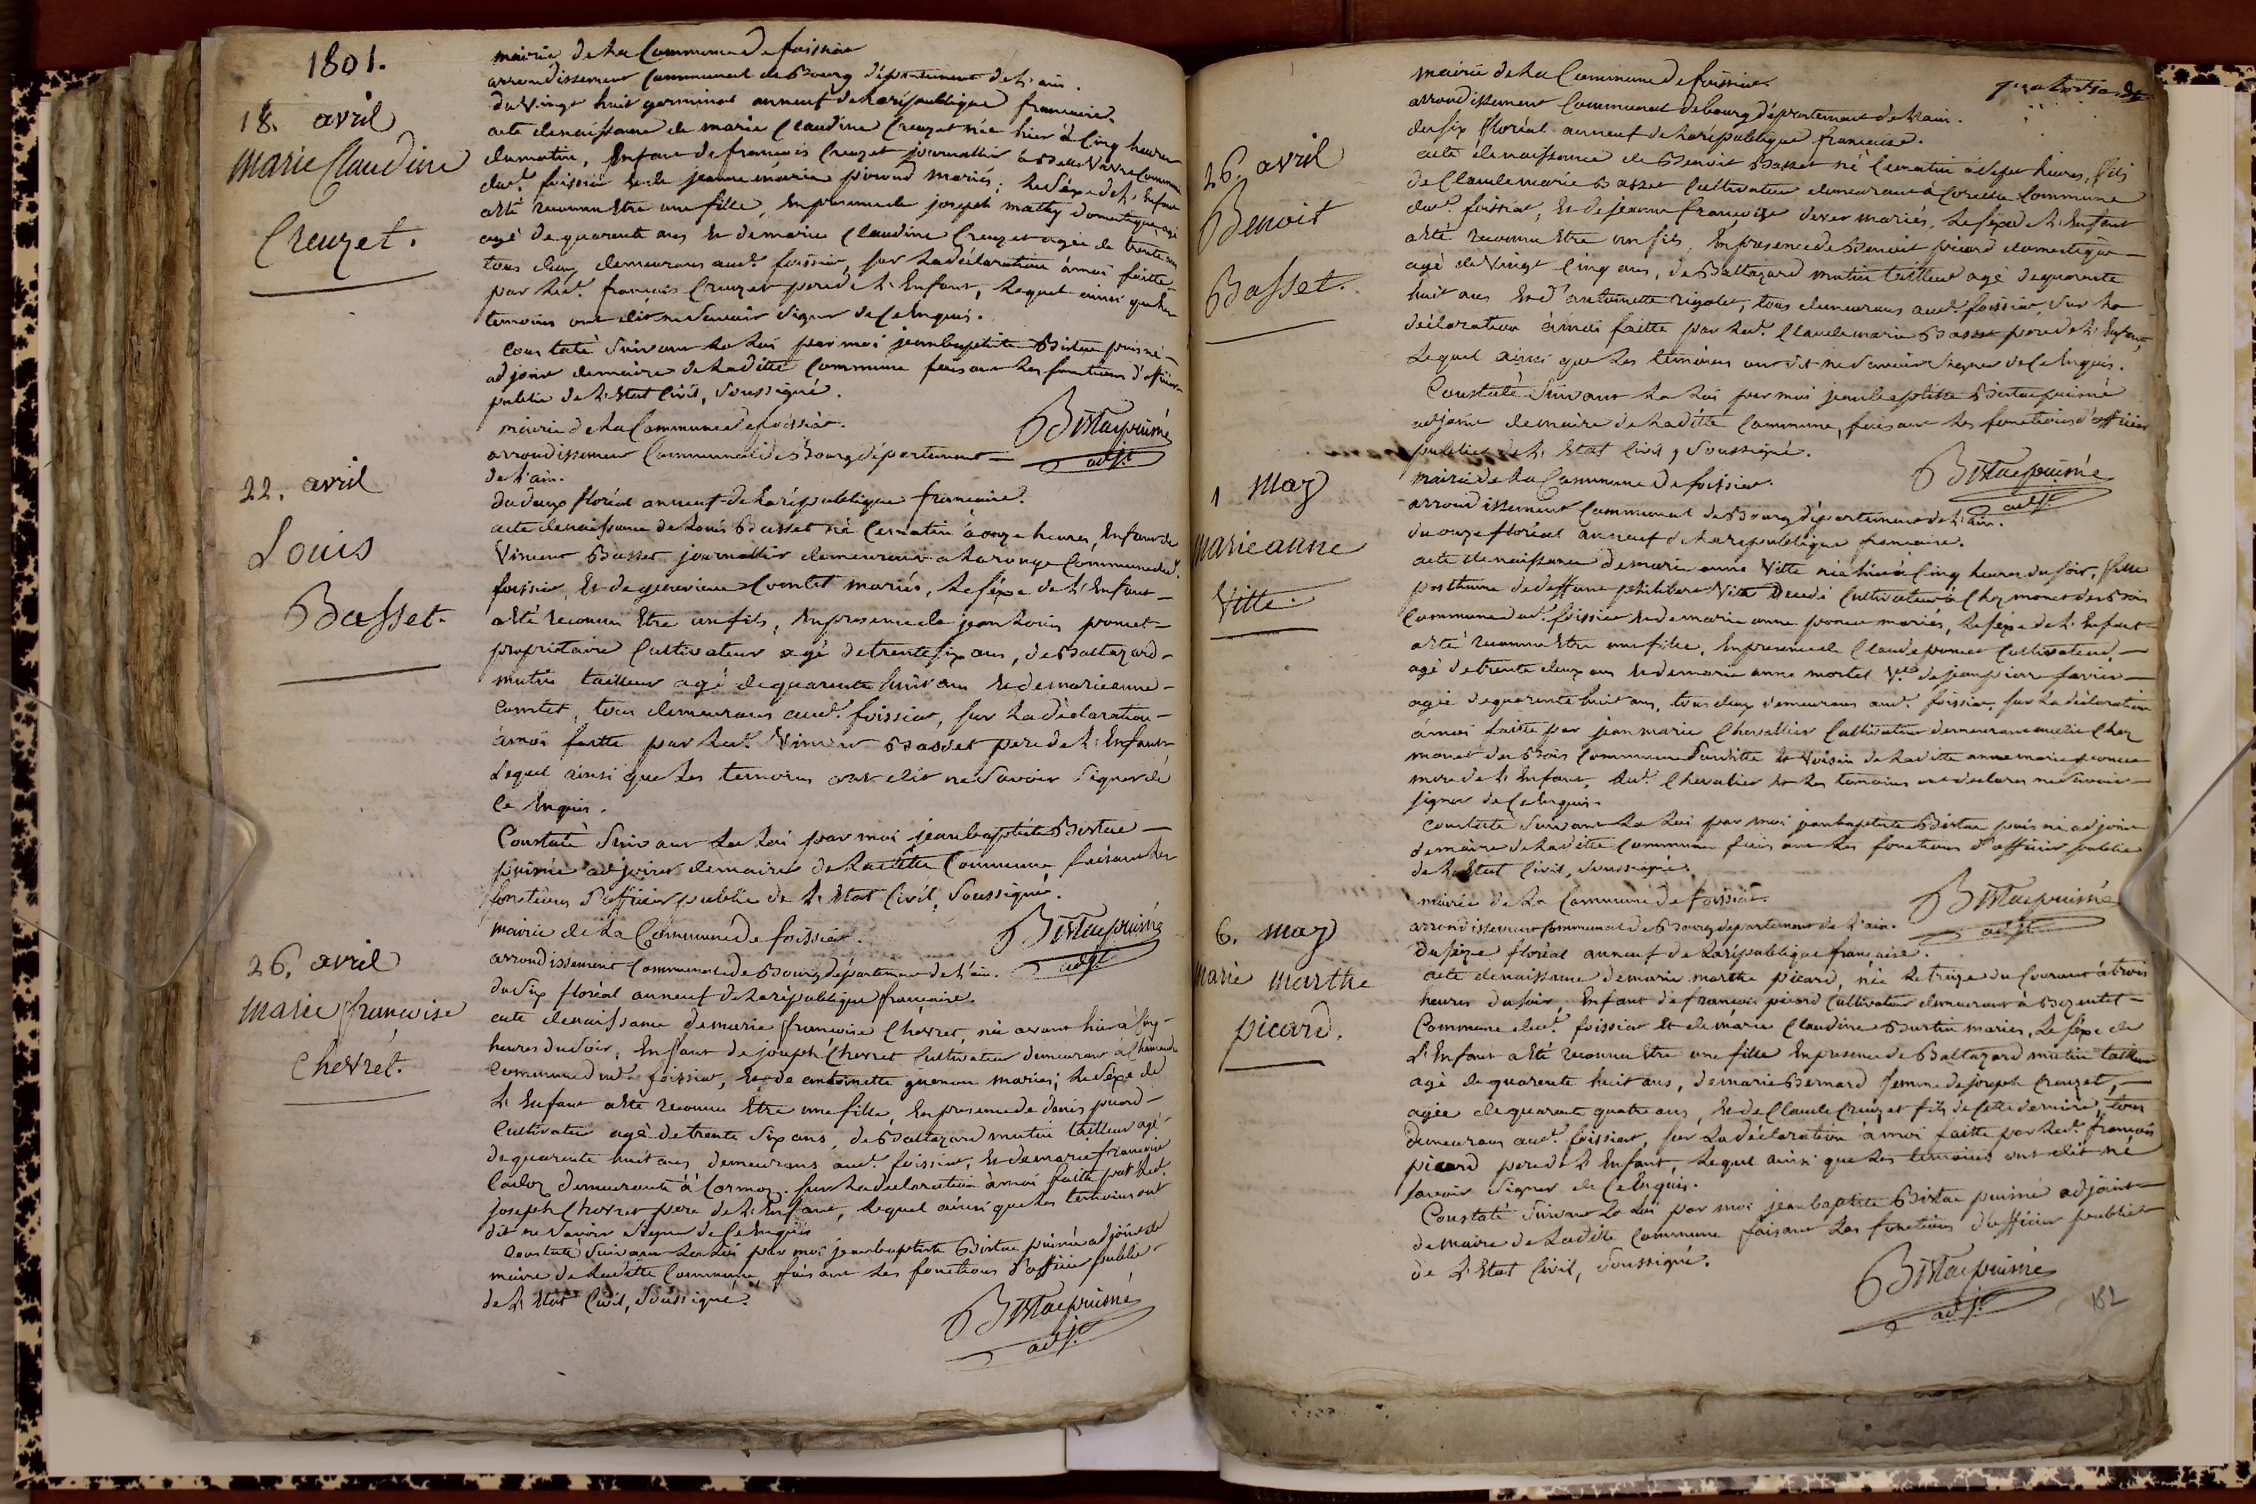 1801.
18. avril
Marie Claudine
Creuzet.
mairie de La Commune de foissiat
arrondissement Communal de Bourg département de L'ain.
du vingt huit germinal an neuf de La république francaise.
acte de naissance de marie Claudine Creuzet née hier à Cinq heures
du matin, Enfant de francois Creuzet journallier Commune
dud.t foissiat et de jeanne marie mariés; Le séxe de L'Enfant
a été reconnu Etre une fille, En presence de joseph domestique
agé de quarente ans Et de marie Claudine Creuzet agée de trente ans
tous deux demeurans aud.t foissiat, sur La déclaration à moi faitte
par Led.t francois Creuzet pere de L'Enfant, Lequel ainsi que Les
temoins ont dit ne Savoir Signer de Ce Enquis.
Constaté Suivant La Loi par moi jean baptiste puisné
adjoint de maire de La ditte Commune faisant Les fonctions d'officier
public de L'Etat Civil, Soussigné.
adj.t
22. avril
Louis
Basset.
mairie de La Commune de foissiat.
arrondissement Communal de Bourg département
de L'ain.
du deux floréal an neuf de La république francaise.
acte de naissance de Louis Basset né Ce matin à onze heures, Enfant de
Vincent Basset journallier demeurant a Commune dud.t
foissiat, Et de genevieve Comtet mariés, Le séxe de L'Enfant
a Eté reconnu Etre un fils, En presence de jean Louis poncet
propriétaire Cultivateur agé de trente six ans, de Baltazard
mutin tailleur agé de quarente huit ans Et de marieanne
Comtet, tous demeurans aud.t foissiat, sur La déclaration
à moi faitte par Led.t Vincent Basset pere de L'Enfant
Lequel ainsi que Les temoins ont dit ne Savoir Signer de
Ce Enquis.
Constaté Suivant La Loi par moi jean baptiste
puisné adjoint de maire de La ditte Commune faisant Les
fonctions d'officier public de L'Etat Civil, Soussigné.
adj.t
26. avril
Marie francoise
Chevret.
mairie de La Commune de foissiat.
arrondissement Communal de Bourg département de L'ain.
du Six floréal an neuf de La république francaise.
acte de naissance de marie francoise Chevret, née avant hier à Cinq
heures du Soir, Enfant de joseph Chevret Cultivateur demeurant à
Commune dud.t foissiat, Et de antoinette mariés; Le Séxe de
L'Enfant a Eté reconnu Etre une fille, En presence de denis
Cultivateur agé de trente Six ans, de Baltazard mutin tailleur agé
de quarente huit ans demeurans aud.t foissiat, Et de marie francoise
demeurante à Cormoz. Sur La déclaration à moi faitte par Led.t
joseph Chevret pere de L'Enfant, Lequel ainsi que Les temoins ont
dit ne Savoir Signer de Ce Enquis
Constaté Suivant La Loi par moi jean baptiste puisné adjoint de
maire de La ditte Commune, faisant Les fonctions d'officier public
de L'Etat Civil, Soussigné.
adj.t
26. avril
Benoit
Basset.
mairie de La Commune de foissiat.
arrondissement Communal de bourg département de L'ain.
du six floréal an neuf de La république francaise.
acte de naissance de Benoit Basset né Ce matin à Sept heures, fils
de Claude marie Basset Cultivateur demeurant à Commune
dud.t foissiat, Et de jeanne francoise mariés, Le séxe de L'Enfant
a Eté reconnu Etre un fils, En presence de Benoit picard domestique
agé de Vingt Cinq ans, de Baltazard mutin tailleur agé de quarente
huit ans Et d'antoinette rigolet, tous demeurans aud.t foissiat, Sur La
déclaration à moi faitte par Led.t Claude marie Basset pere de L'Enfant,
Lequel ainsi que Les temoins ont dit ne Savoir Signer de Ce Enquis.
Constaté Suivant La Loi par moi jean baptiste puisné
adjoint de maire de La ditte Commune, faisant Les fonctions d'officier
public de L'Etat Civil, Soussigné.
adj.t
1 May
Marie anne
Vitte.
mairie de La Commune de foissiat.
arrondissement Communal de Bourg département de L'ain.
du onze floréal an neuf de La république francaise.
acte de naissance de marie anne Vitte née hier à Cinq heures du Soir, fille
posthume de deffunt philibert Vitte Cultivateur à Chez monet des Bois
Commune dud.t foissiat Et de marie anne poncet mariés, Le séxe de L'Enfant
a Eté reconnu Etre une fille, En presence de Claude poncet Cultivateur
agé de trente deux ans Et de marie anne mortel V.e de jean pierre
agée de quarente huit ans, tous deux demeurans aud.t foissiat, sur La déclaration
à moi faitte par jean marie Chevallier Cultivateur demeurant audit Chez
monet des Bois Commune Susditte Et Voisin de La ditte anne marie poncet
mere de L'Enfant, Led.t Chevalier Et Les temoins ont déclarés ne Savoir
signer de Ce Enquis.
Constaté Suivant La Loi par moi jean baptiste puisné adjoint
de maire de La ditte Commune faisant Les fonctions d'officier public
de L'Etat Civil, Soussigné.
adj.t
6. may
Marie Marthe
picard.
mairie de La Commune de foissiat.
arrondissement Communal de Bourg département de L'ain.
du seize floréal an neuf de La république francaise.
acte de naissance de marie marthe picard, née Le treize du Courant à trois
heures du Soir, Enfant de francois picard Cultivateur demeurant à
Commune dud.t foissiat Et de marie Claudine mariés, Le séxe de
L'Enfant a Eté reconnu Etre une fille En presence de Baltazard mutin tailleur
agé de quarente huit ans, de marie Bernard femme de joseph Creuzet,
agée de quarente quatre ans, Et de Claude Creuzet fils de Cette derniere, tous
demeurans aud.t foissiat, sur La déclaration à moi faitte par Led.t francois
picard pere de L'Enfant, Lequel ainsi que Les temoins ont dit ne
Savoir Signer de Ce Enquis.
Constaté Suivant La Loi par moi jean baptiste puisné adjoint
de maire de La ditte Commune faisant Les fonctions d'officier public
de L'Etat Civil, Soussigné.
adj.t
182